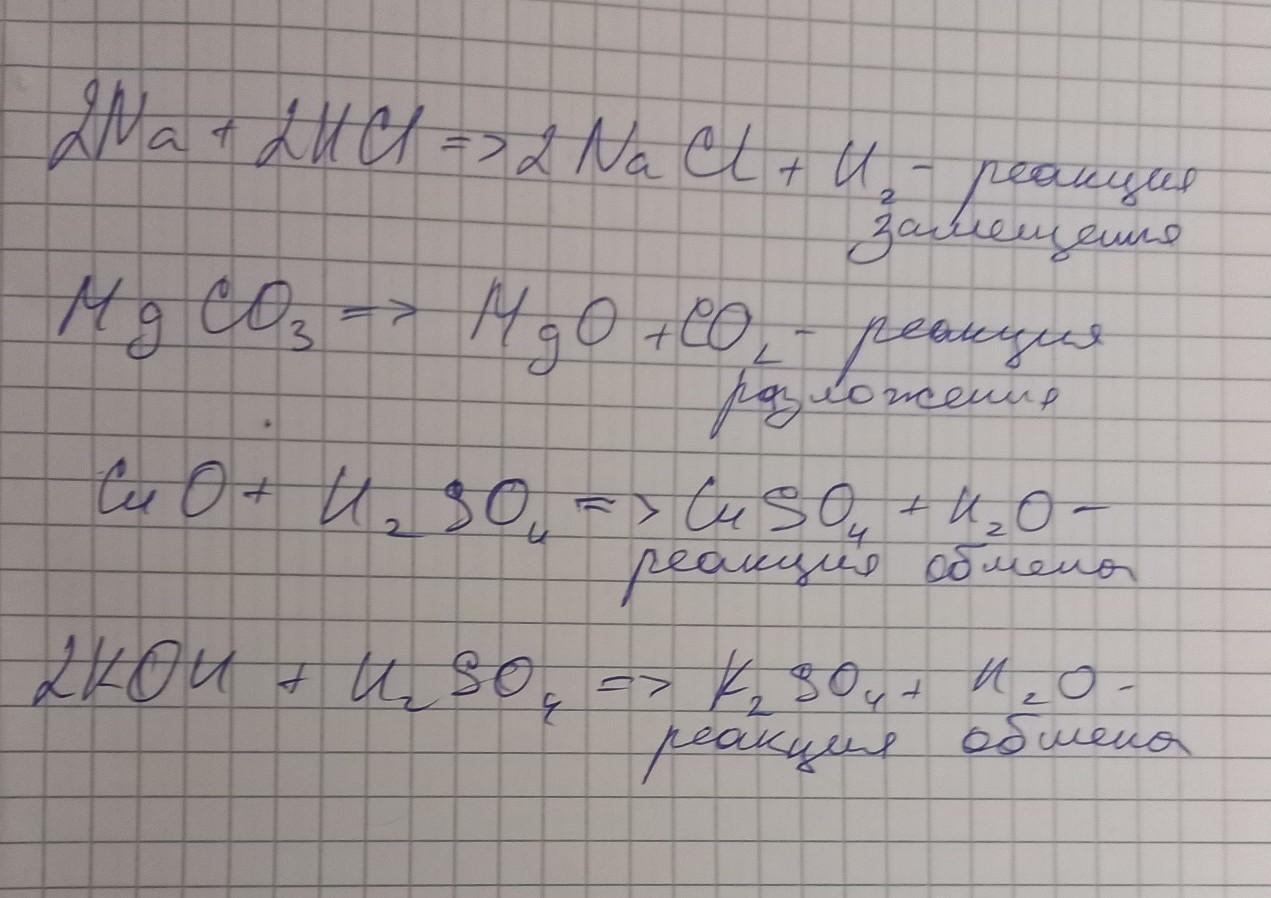 2Na + 2HCl => 2NaCl + H₂ - реакция
замещения
MgCO₃ => MgO + CO₂ - реакция
разложения
CuO + H₂SO₄ => CuSO₄ + H₂O -
реакция обмена
2KOH + H₂SO₄ => K₂SO₄ + H₂O -
реакция обмена